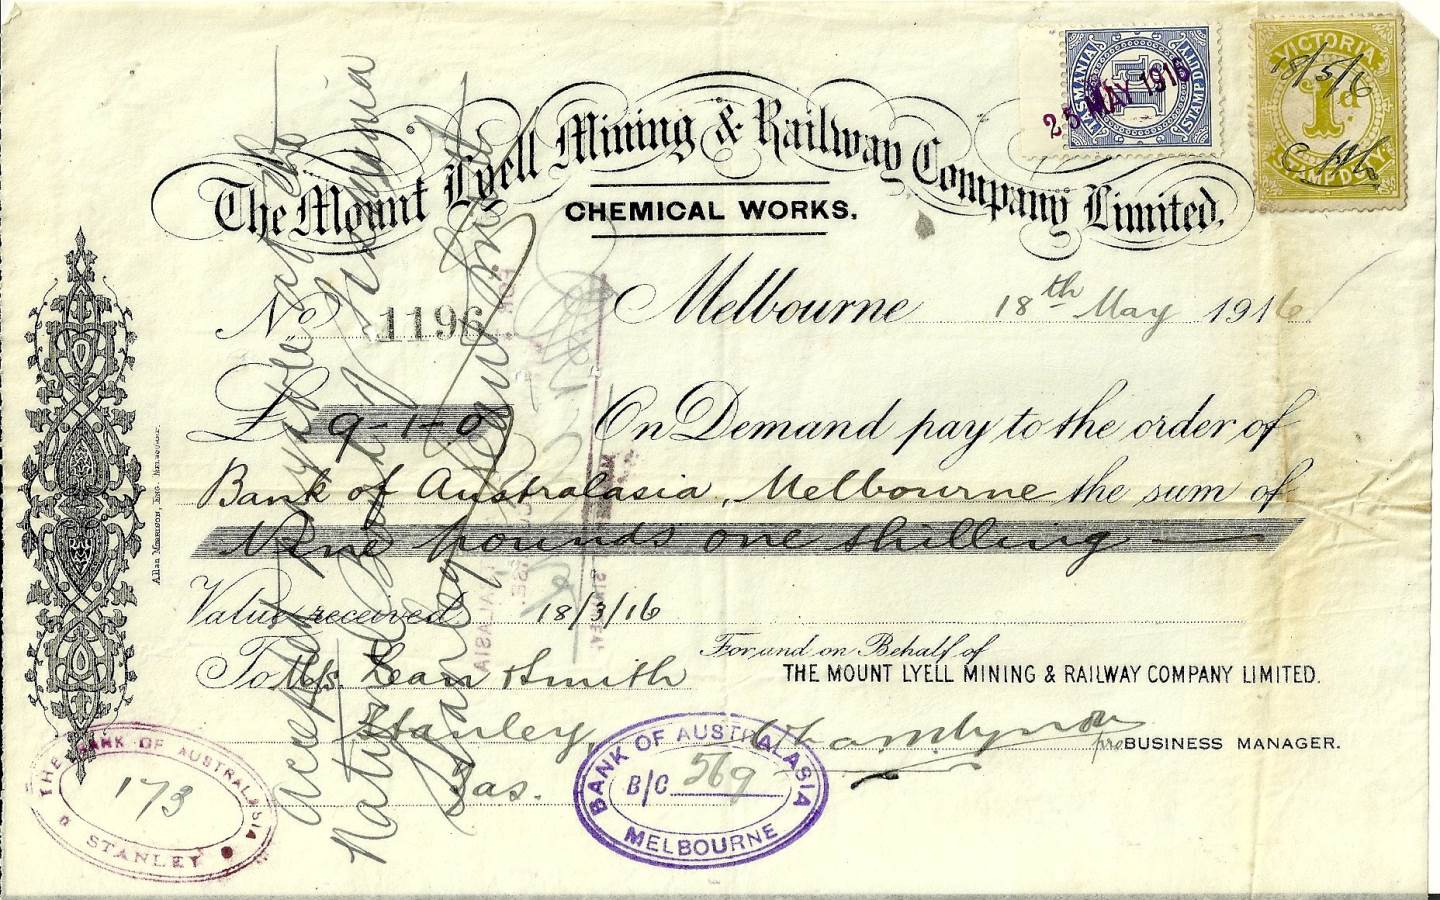 The Mount Lyell Mining & Railway Company Limited.
CHEMICAL WORKS.
TASMANIA
STAMP DUTY
1
25 MAY 1916
VICTORIA
1d
STAMP DUTY
18/5/16
No 1196
Melbourne 18th May 1916
£ 9-1-0 On Demand pay to the order of
Bank of Australasia, Melbourne the sum of
Nine pounds one shilling
Value received 18/3/16
For and on Behalf of
THE MOUNT LYELL MINING & RAILWAY COMPANY LIMITED.
To M/s. Lean Smith
Stanley,
Tas.
pro BUSINESS MANAGER.
Allan Morrison, Eng. Melbourne.
Accepted payable at the
National Bank of Tasmania
Stanley
THE BANK OF AUSTRALASIA
173
STANLEY
BANK OF AUSTRALASIA
B/C 569
MELBOURNE